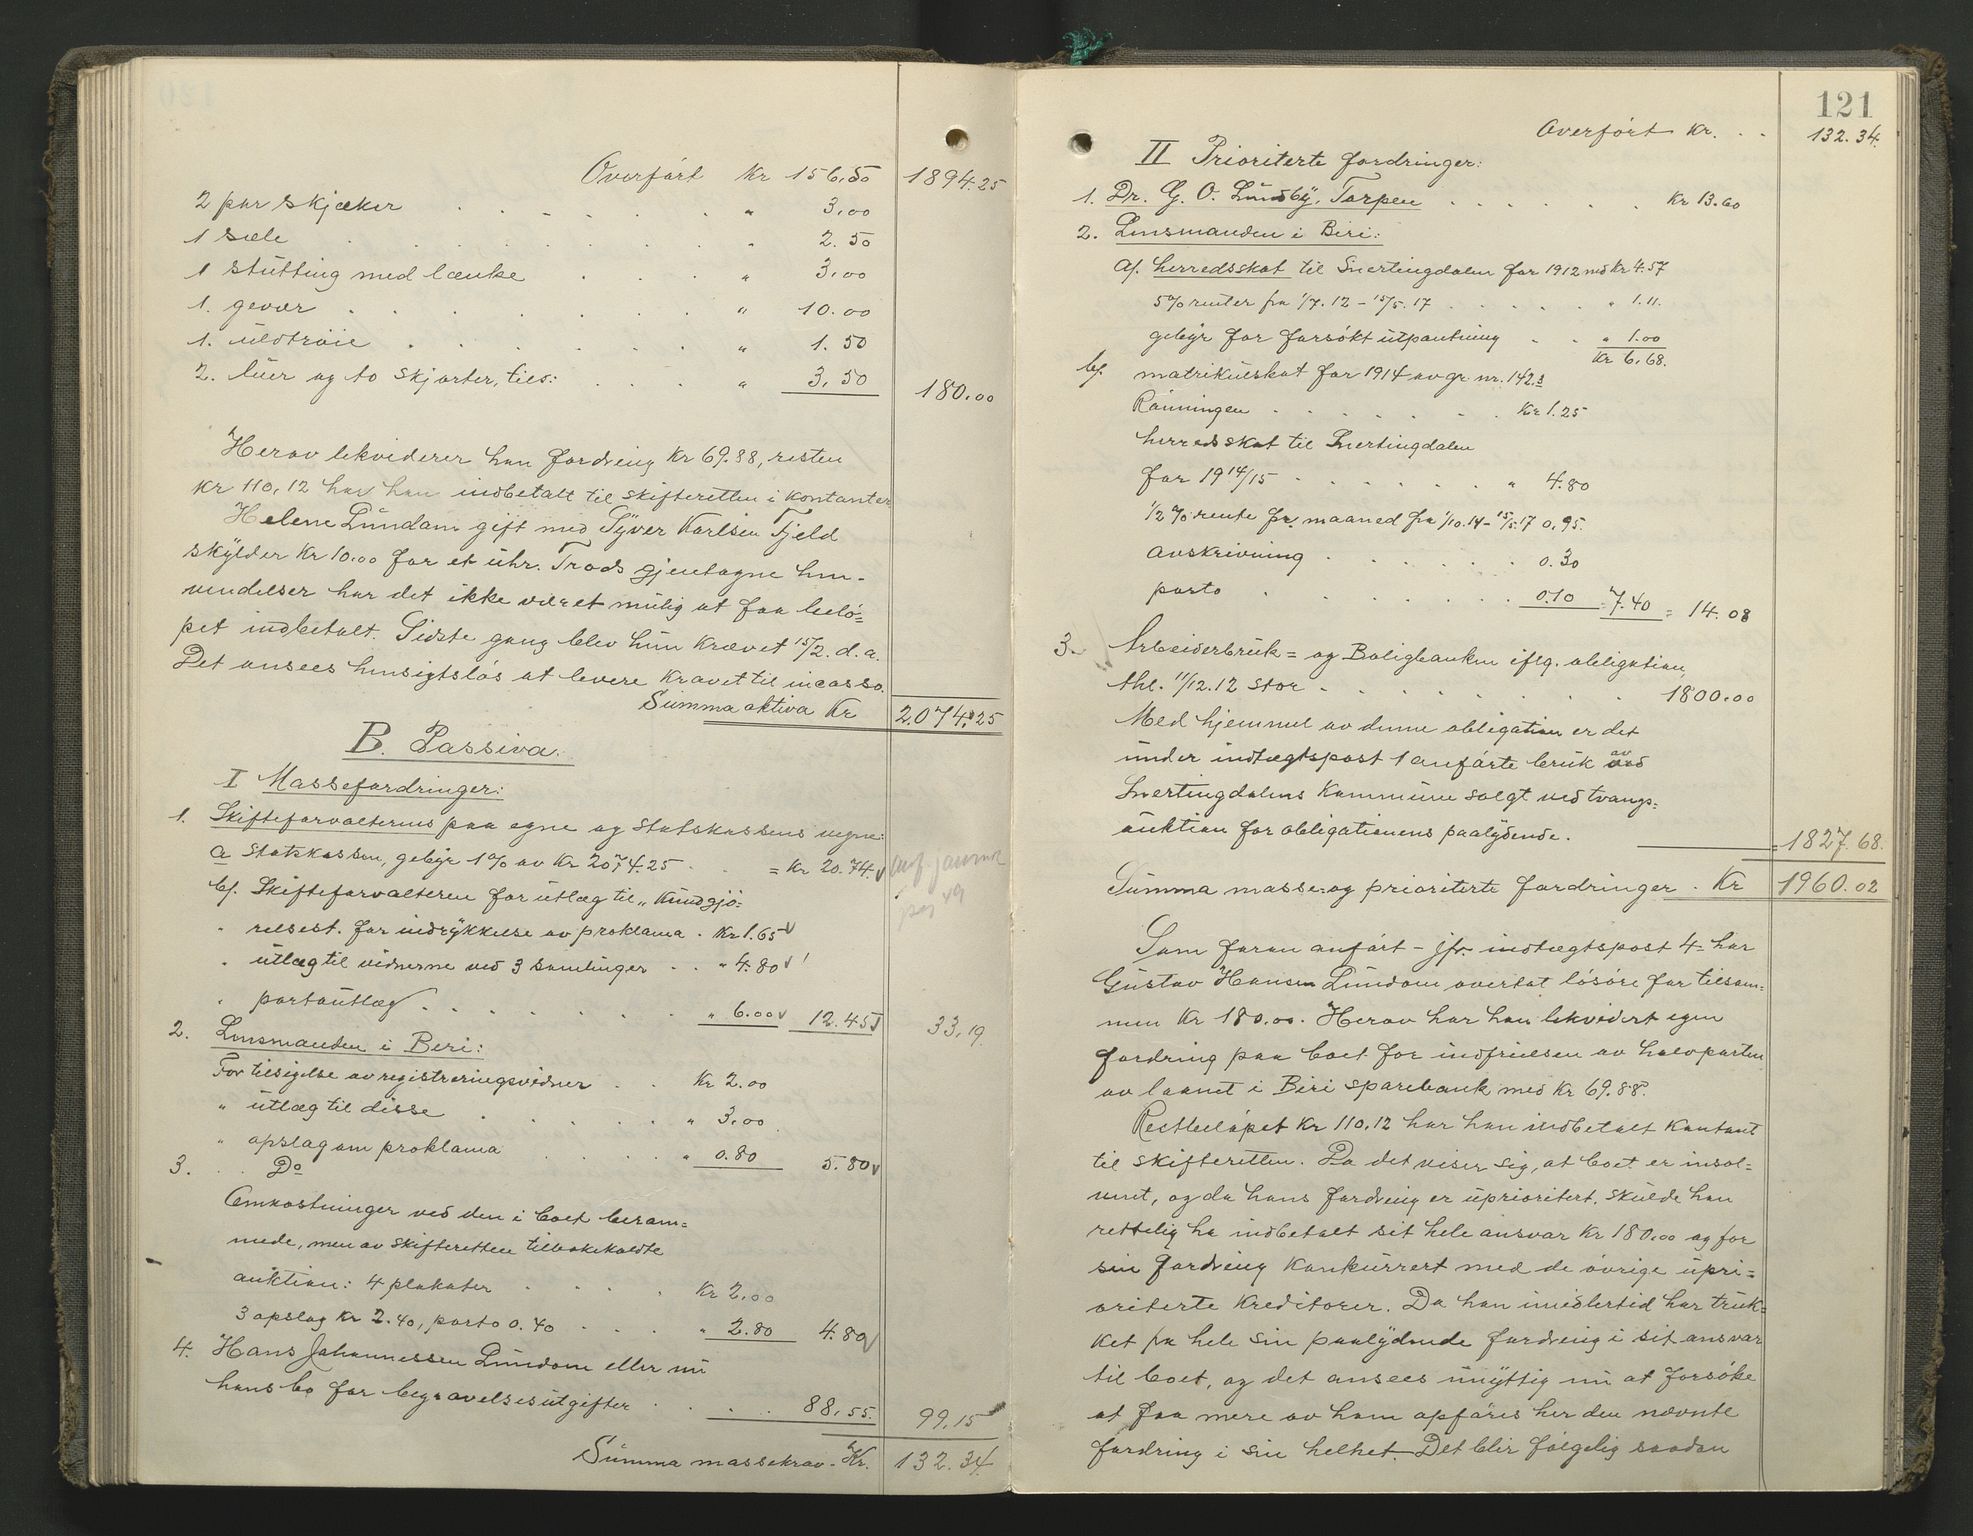 Overført Kr 156.50 1894.25
2 par skjæker . . . . . " 3.00
1 sæle . . . . . " 2.50
1 stutting med lænke . . . " 3.00
1. gevær . . . . . " 10.00
1. uldtrøie . . . . . " 1.50
2. luer og to skjorter, tils: . . . " 3.50 180.00
Herav lekviderer han fordring Kr 69.88, resten
Kr 110,12 har han indbetalt til skifteretten i kontanter
Helene Lundom gift med Syver Karlsen Fjeld
skylder Kr 10.00 for et uhr. Trods gjentagne hen-
vendelser har det ikke været mulig at faa belø=
pet indbetalt. Sidste gang blev hun krævet 15/2. d.a.
Det ansees hensigtsløs at levere kravet til incasso.
Summa aktiva Kr 2.074.25
B. Passiva.
I Massefordringer:
1. Skifteforvalterens paa egne og statskassens vegne:
a statskassen, gebyr 1% av Kr 2074.25 . . = Kr 20.74.
b/. Skifteforvalteren for utlæg til "Kundgjø=
" relsest. for indrykkelse av proklama . Kr 1.65
" utlæg til vidnerne ved 3 samlinger . . " 4.80
" portoutlæg . . . . . " 6.00 12.45 33,19.
2. Lensmanden i Biri:
For tilsigelse av registreringsvidner . . Kr 2.00
" utlæg til disse . . . . " 3.00
" opslag om proklama . . . . " 0.80 5.80
3. . . Do
Omkostninger ved den i boet beram=
mede, men av skifteretten tilbakekaldte
auktion: 4 plakater . . . . Kr 2.00
3 opslag Kr 2.40, porto 0.40 . . . " 2.80 4.80
4. Hans Johannessen Lundom eller nu
hans bo for begravelsesutgifter . . . 88,55. 99.15
Summa massekrav - Kr. 132.34
121
Overført Kr. . . 132.34.
II Prioriterte fordringer:
1. Dr. G. O. Lundby, Torpen . . . . . . Kr 13.60
2. Lensmanden i Biri:
a/. herredsskat til Snertingdalen for 1912 med Kr 4.57
5% renter fra 1/7.12 - 15/5.17 . . . . . " 1.11.
gebyr for forsøkt utpantning . . " 1.00
Kr 6,68.
b/. matrikulskat for 1914 av gr. nr. 142.3
Rønningen . . . . . . Kr 1.25
herredsskat til Snertingdalen
for 1914/15 . . . . . . " 4.80
1/2 % rente pr. maaned fra 1/10.14 - 15/5.17 0,95.
avskrivning . . . . . 0.30
porto . . . . . . 0.10 7.40 = 14.08
3. Arbeiderbruk= og Boligbanken iflg. obligation,
thl. 11/12.12 stor . . . . . . . 1800.00
Med hjemmel av denne obligation er det
under indtægtspost 1 anførte bruk av
Snertingdalens Kommune solgt ved tvangs=
auktion for obligationens paalydende.
1827.68.
Summa masse= og prioriterte fordringer . Kr 1960.02
Som foran anført - jfr. indtægtspost 4 - har
Gustav Hansen Lundom overtat løsøre for tilsam=
men Kr 180.00. Herav har han lekvidert egen
fordring paa boet for indfrielsen av halvparten
av laanet i Biri sparebank med Kr 69.88.
Restbeløpet Kr 110,12 har han indbetalt kontant
til skifteretten. Da det viser sig, at boet er insol=
vent, og da hans fordring er uprioritert, skulde han
rettelig ha indbetalt sit hele ansvar Kr 180.00 og for
sin fordring konkurrert med de øvrige upri=
oriterte kreditorer. Da han imidlertid har truk=
ket fra hele sin paalydende fordring i sit ansvar
til boet, og det ansees unyttig nu at forsøke
at faa mere av ham opføres her den nævnte
fordring i sin helhet. Det blir følgelig saadan